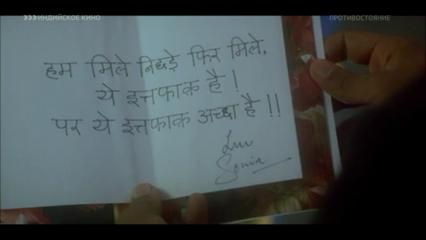 333 ИНДИЙСКОЕ КИНО
ПРОТИВОСТОЯНИЕ
हम मिले बिछड़े फिर मिले,
ये इत्तफाक है !
पर ये इत्तफाक अच्छा है !!
Luv
Sonia